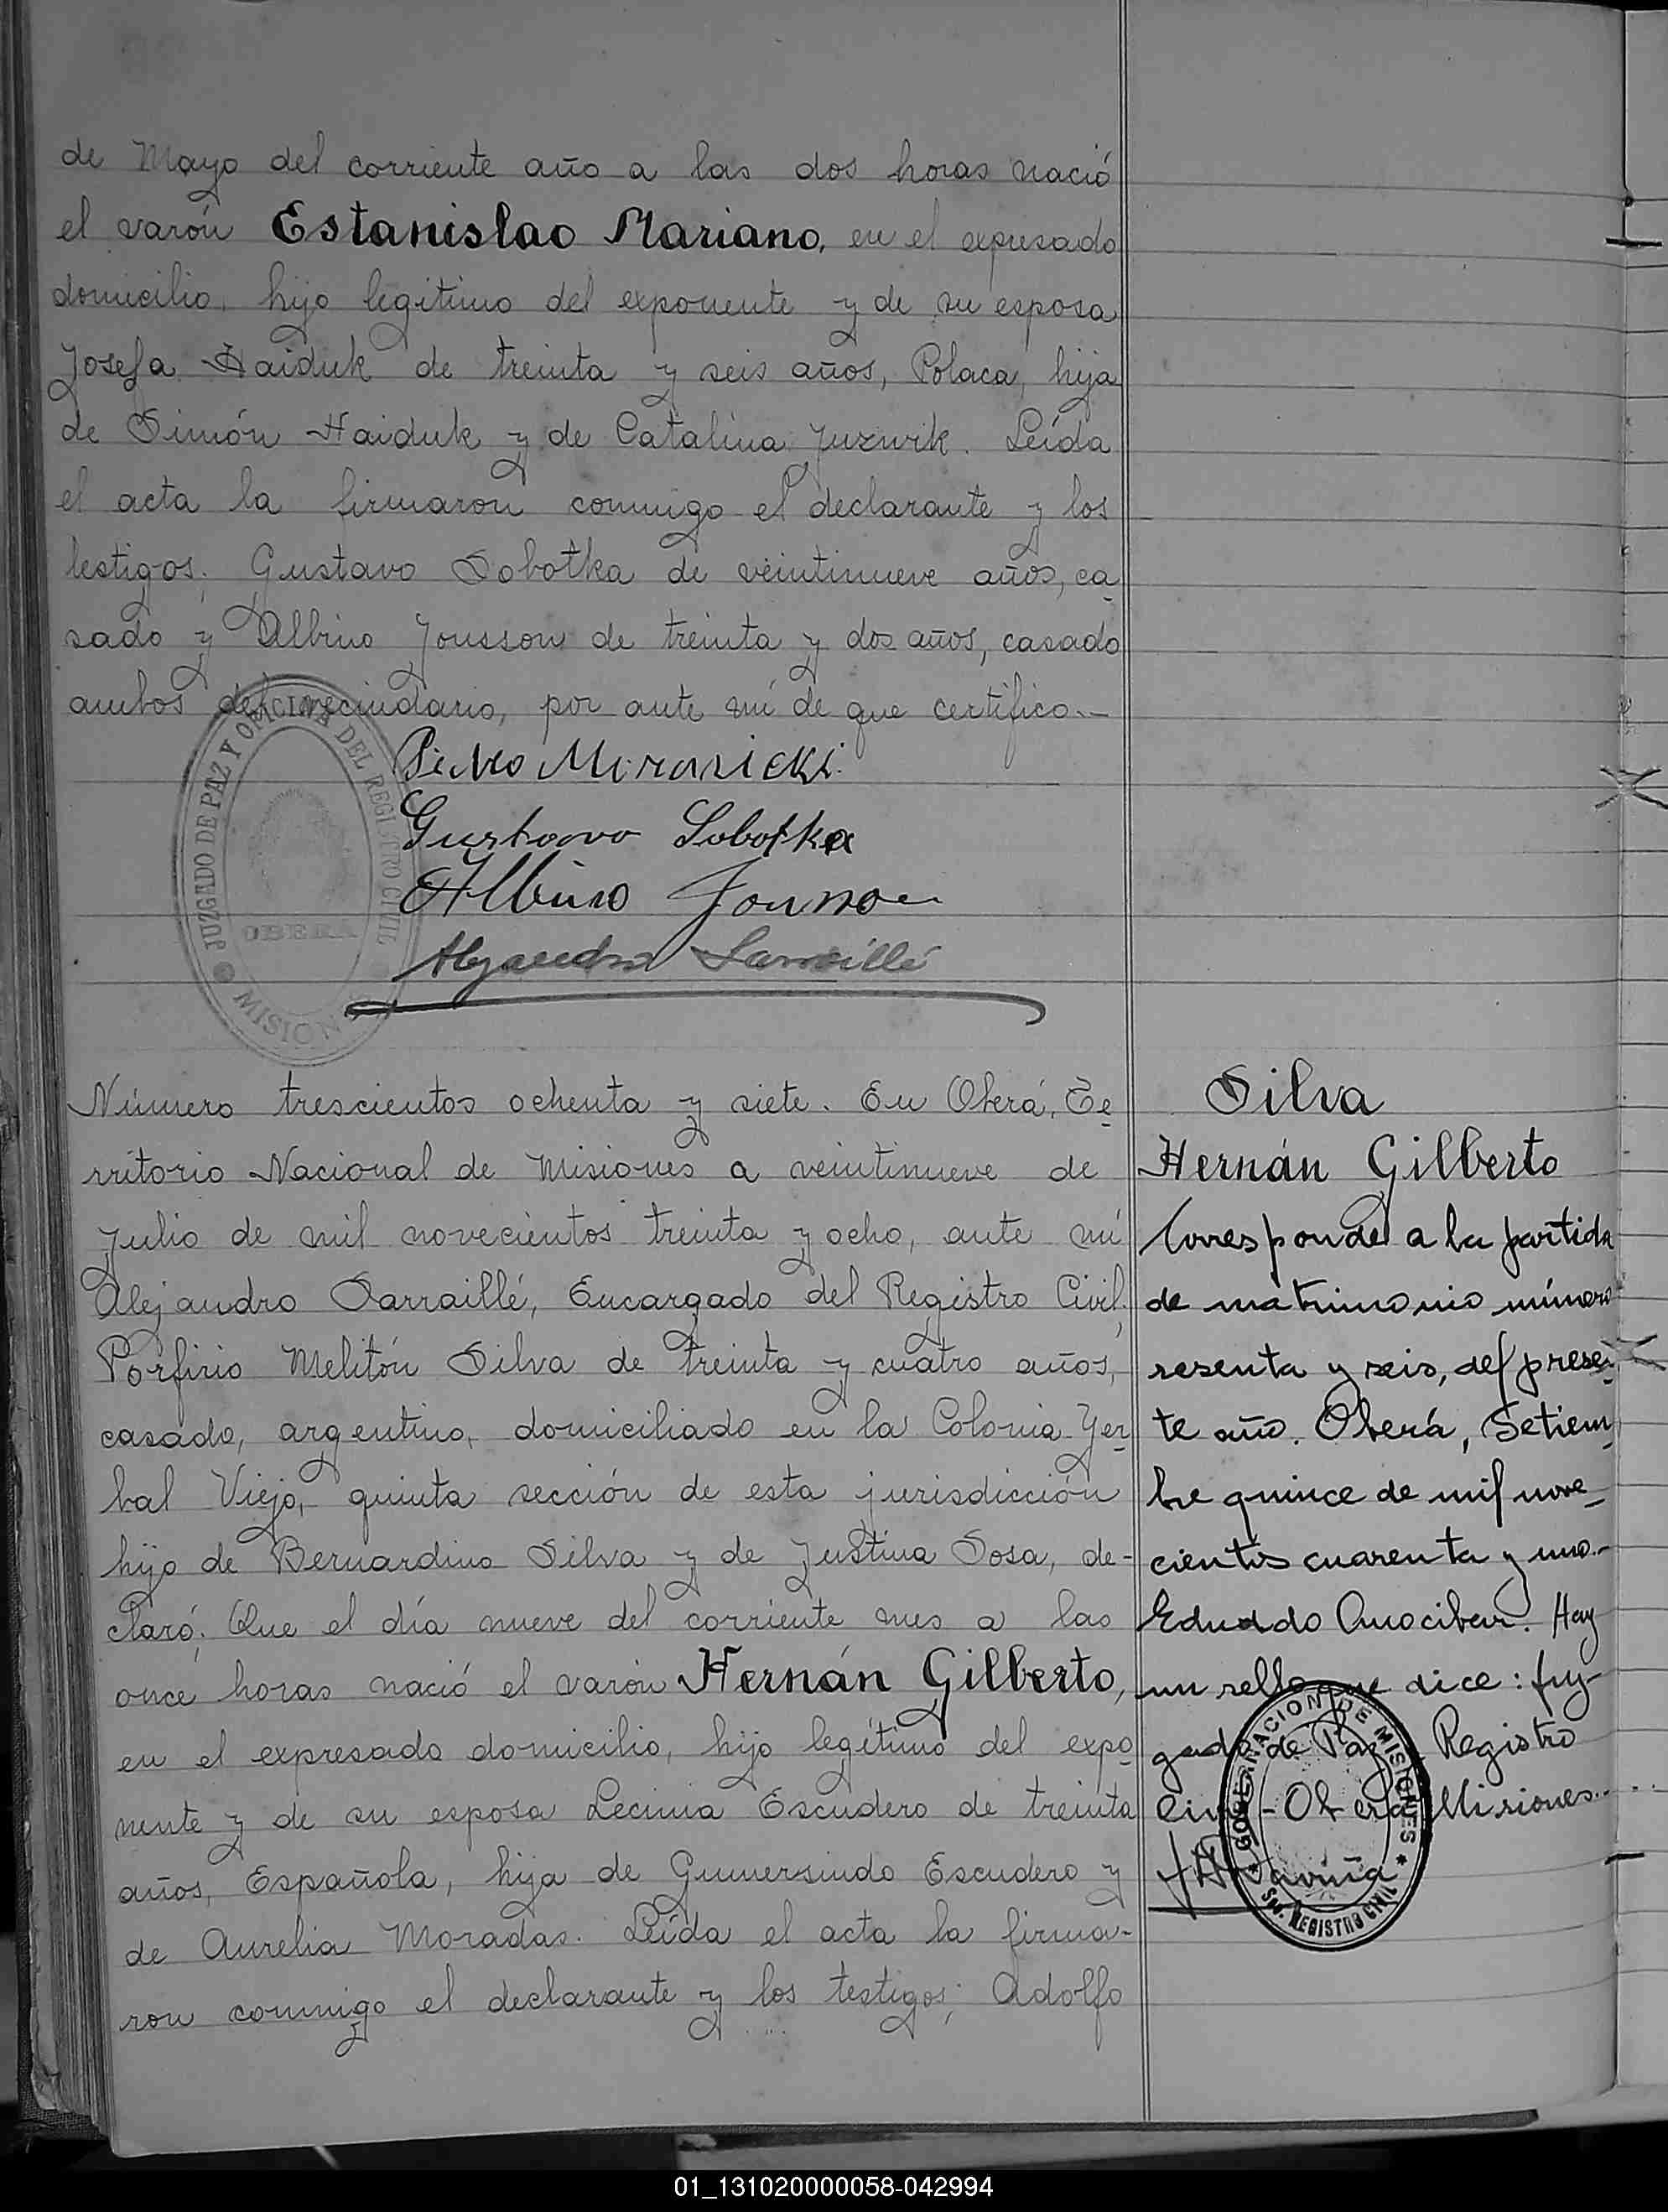 de Mayo del corriente año a las dos horas nació
el varón Estanislao Mariano, en el expresado
domicilio, hijo legitimo del exponente y de su esposa
Josefa Haiduk de treinta y seis años, Polaca, hija
de Simón Haiduk y de Catalina Juzwik. Leída
el acta la firmaron conmigo el declarante y los
testigos; Gustavo Sobotka de veintinueve años, ca
sado y Albino Jonsson de treinta y dos años, casado
ambos del vecindario, por ante mí de que certifico.-
JUZGADO DE PAZ Y OFICINA DEL REGISTRO CIVIL
OBERA
MISIONES
Gustavo Sobotka
Albino
Alejandro Sarraillé
Número trescientos ochenta y siete. En Oberá, Te
rritorio Nacional de Misiones a veintinueve de
Julio de mil novecientos treinta y ocho, ante mí
Alejandro Sarraillé, Encargado del Registro Civil,
Porfirio Melitón Silva de treinta y cuatro años,
casado, argentino, domiciliado en la Colonia Yer
bal Viejo, quinta sección de esta jurisdicción
hijo de Bernardino Silva y de Justina Sosa, de-
claró: Que el día nueve del corriente mes a las
once horas nació el varón Hernán Gilberto,
en el expresado domicilio, hijo legítimo del expo
nente y de su esposa Lecinia Escudero de treinta
años, Española, hija de Gumersindo Escudero y
de Aurelia Moradas. Leída el acta la firma-
ron conmigo el declarante y los testigos; Adolfo
Silva
Hernán Gilberto
Corresponde a la partida
de matrimonio número
sesenta y seis, del presen
te año. Oberá, Setiem
bre quince de mil nove-
cientos cuarenta y uno.-
Eduardo Anocibar. Hay
un sello que dice: Juz-
gado de Paz y Registro
Civil - Oberá Misiones.-
GOBERNACION DE MISIONES
REGISTRO CIVIL
01_131020000058-042994